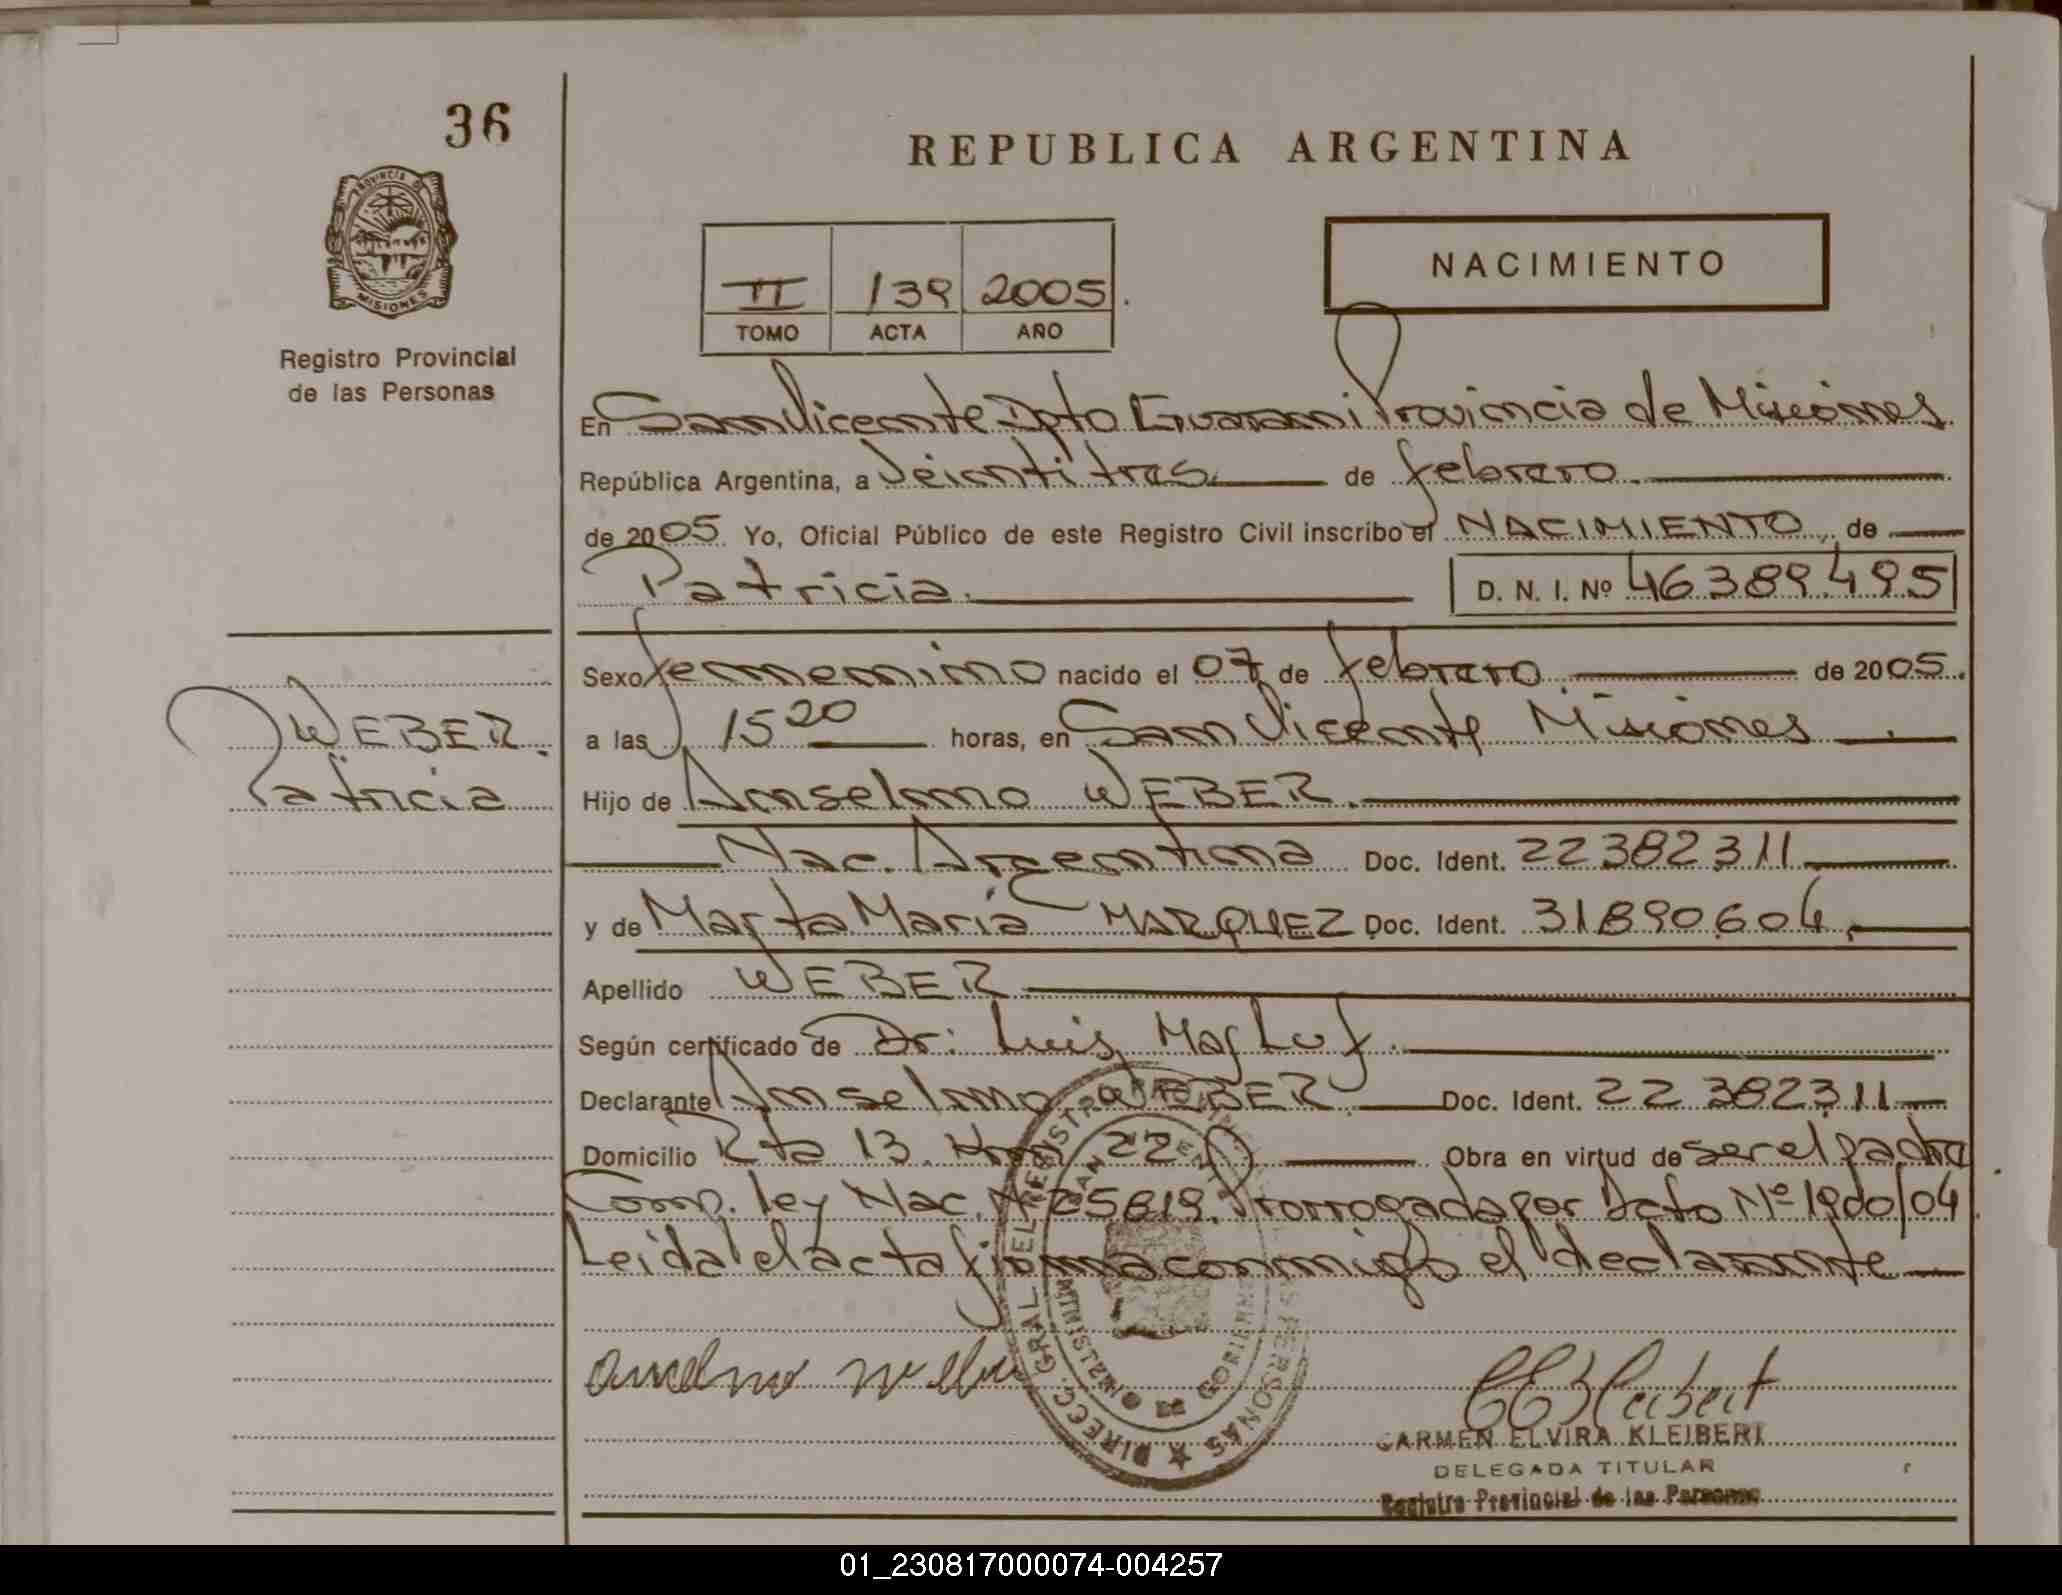 36
REPUBLICA ARGENTINA
PROVINCIA DE
MISIONES
Registro Provincial
de las Personas
NACIMIENTO
II 139 2005.
TOMO ACTA AÑO
En San Vicente Dpto Guarani Provincia de Misiones
República Argentina, a Veintitres de febrero.
de 2005 Yo, Oficial Público de este Registro Civil inscribo el NACIMIENTO de
Patricia. D. N. I. Nº 46.389.495
Sexo femenino nacido el 07 de febrero de 2005.
a las 15 20 horas, en San Vicente Misiones
WEBER.
Patricia
Hijo de Anselmo WEBER.
Nac. Argentina Doc. Ident. 22382311
y de Marta María MARQUEZ Doc. Ident. 31890604.
Apellido WEBER
Según certificado de Dr: Luis Masluf.
Declarante Anselmo WEBER. Doc. Ident. 22 382311
Domicilio Rta 13. Km 22 Obra en virtud de ser el padre
Comp. ley Nac. Nº 25819. Prorrogada por Dcto Nº 1900/04
Leida el acta firma conmigo el declarante
anselmo weber
CARMEN ELVIRA KLEIBERT
DELEGADA TITULAR
Registro Provincial de las Personas
01_230817000074-004257